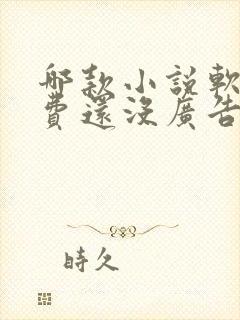 哪款小說軟
費還沒廣告
時久